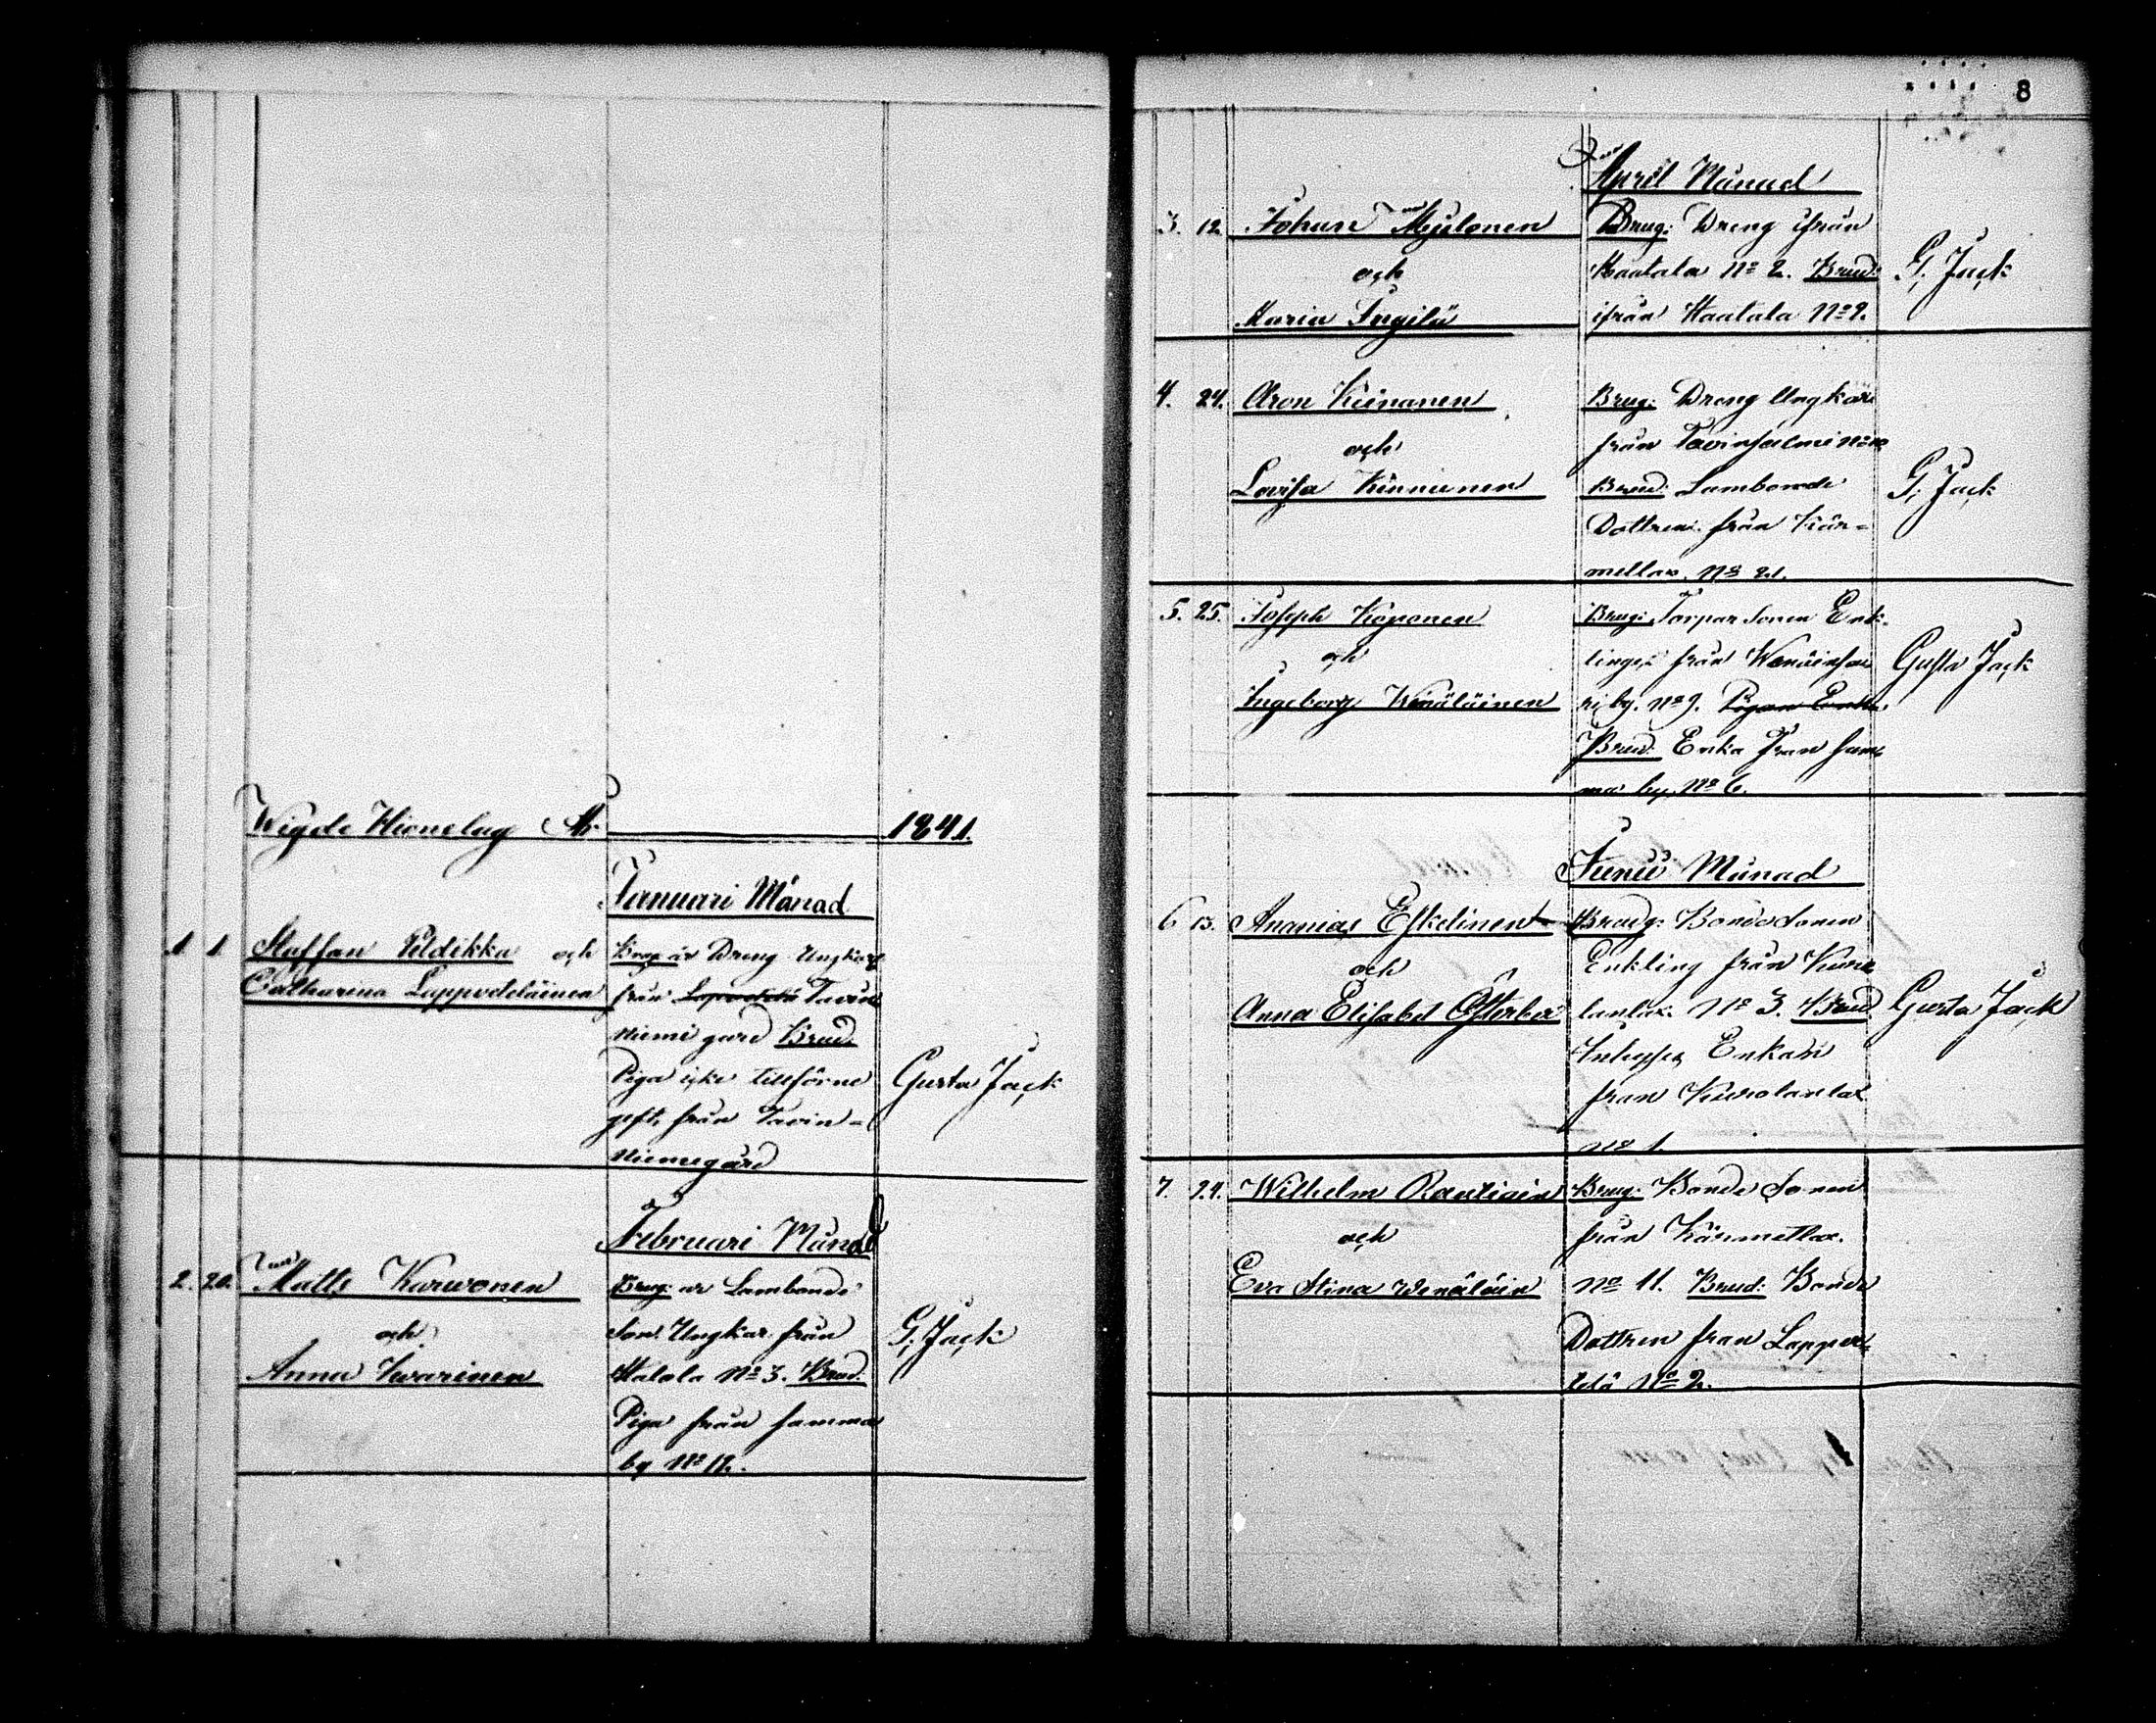 Wigde Hionelag År 1841.
Januari Månad
1. 1 Staffan Peldikka och
Catharina Lappveteläinen
Brug är Dreng Ungkarl
från Lapvetelä Tavin
niemi gård Brud.
Piga icke tillförne
gift, från Tavin-
niemegård
Gusta Jack
Februari Månad
2. 20. Matts Karvonen
och
Anna Kvarinen
Brug: är Lambonde
Son Ungkar från
Hatala No 3. Brud.
Piga från samma
by No 12.
G. Jack
8
April Månad
3. 12. Johan Myelonen
och
Maria Ingilä
Brug: Dreng ifrån
Haatala No 2. Brud:
ifrån Haatala No 2.
G. Jack
4. 24. Aron Kiinanen
och
Lovisa Kinnunen
Brug: Dreng Ungkar
från Tavinsalmi No
Brud: Lambonde
Dottren från Kär-
mellax. No 21.
G. Jack
5. 25. Joseph Koponen
och
Ingeborg Wenäläinen
Brug: Torpar Sonen Enk-
lingen från Wenäinsaa
ri by. No 9. Pigan Enka
Brud: Enka Fran sam-
ma by. No 6.
Gusta Jack
Junii Månad
6 13. Ananias Eskelinen
och
Anna Elisabet Österber
Brudg: Bonde Sonen
Enkling från Kuro
lanlax. No 3. Brud
Inhyses Enkan
fran Kurolanlax
No 1.
Gusta Jack
7. 24. Wilhelm Rautiain
och
Eva Stina Wenäläin
Brug: Bonde Sonen
från Kärmetlax.
No 11. Brud: Bonde
Dottren fran Lappve-
telä No 2.